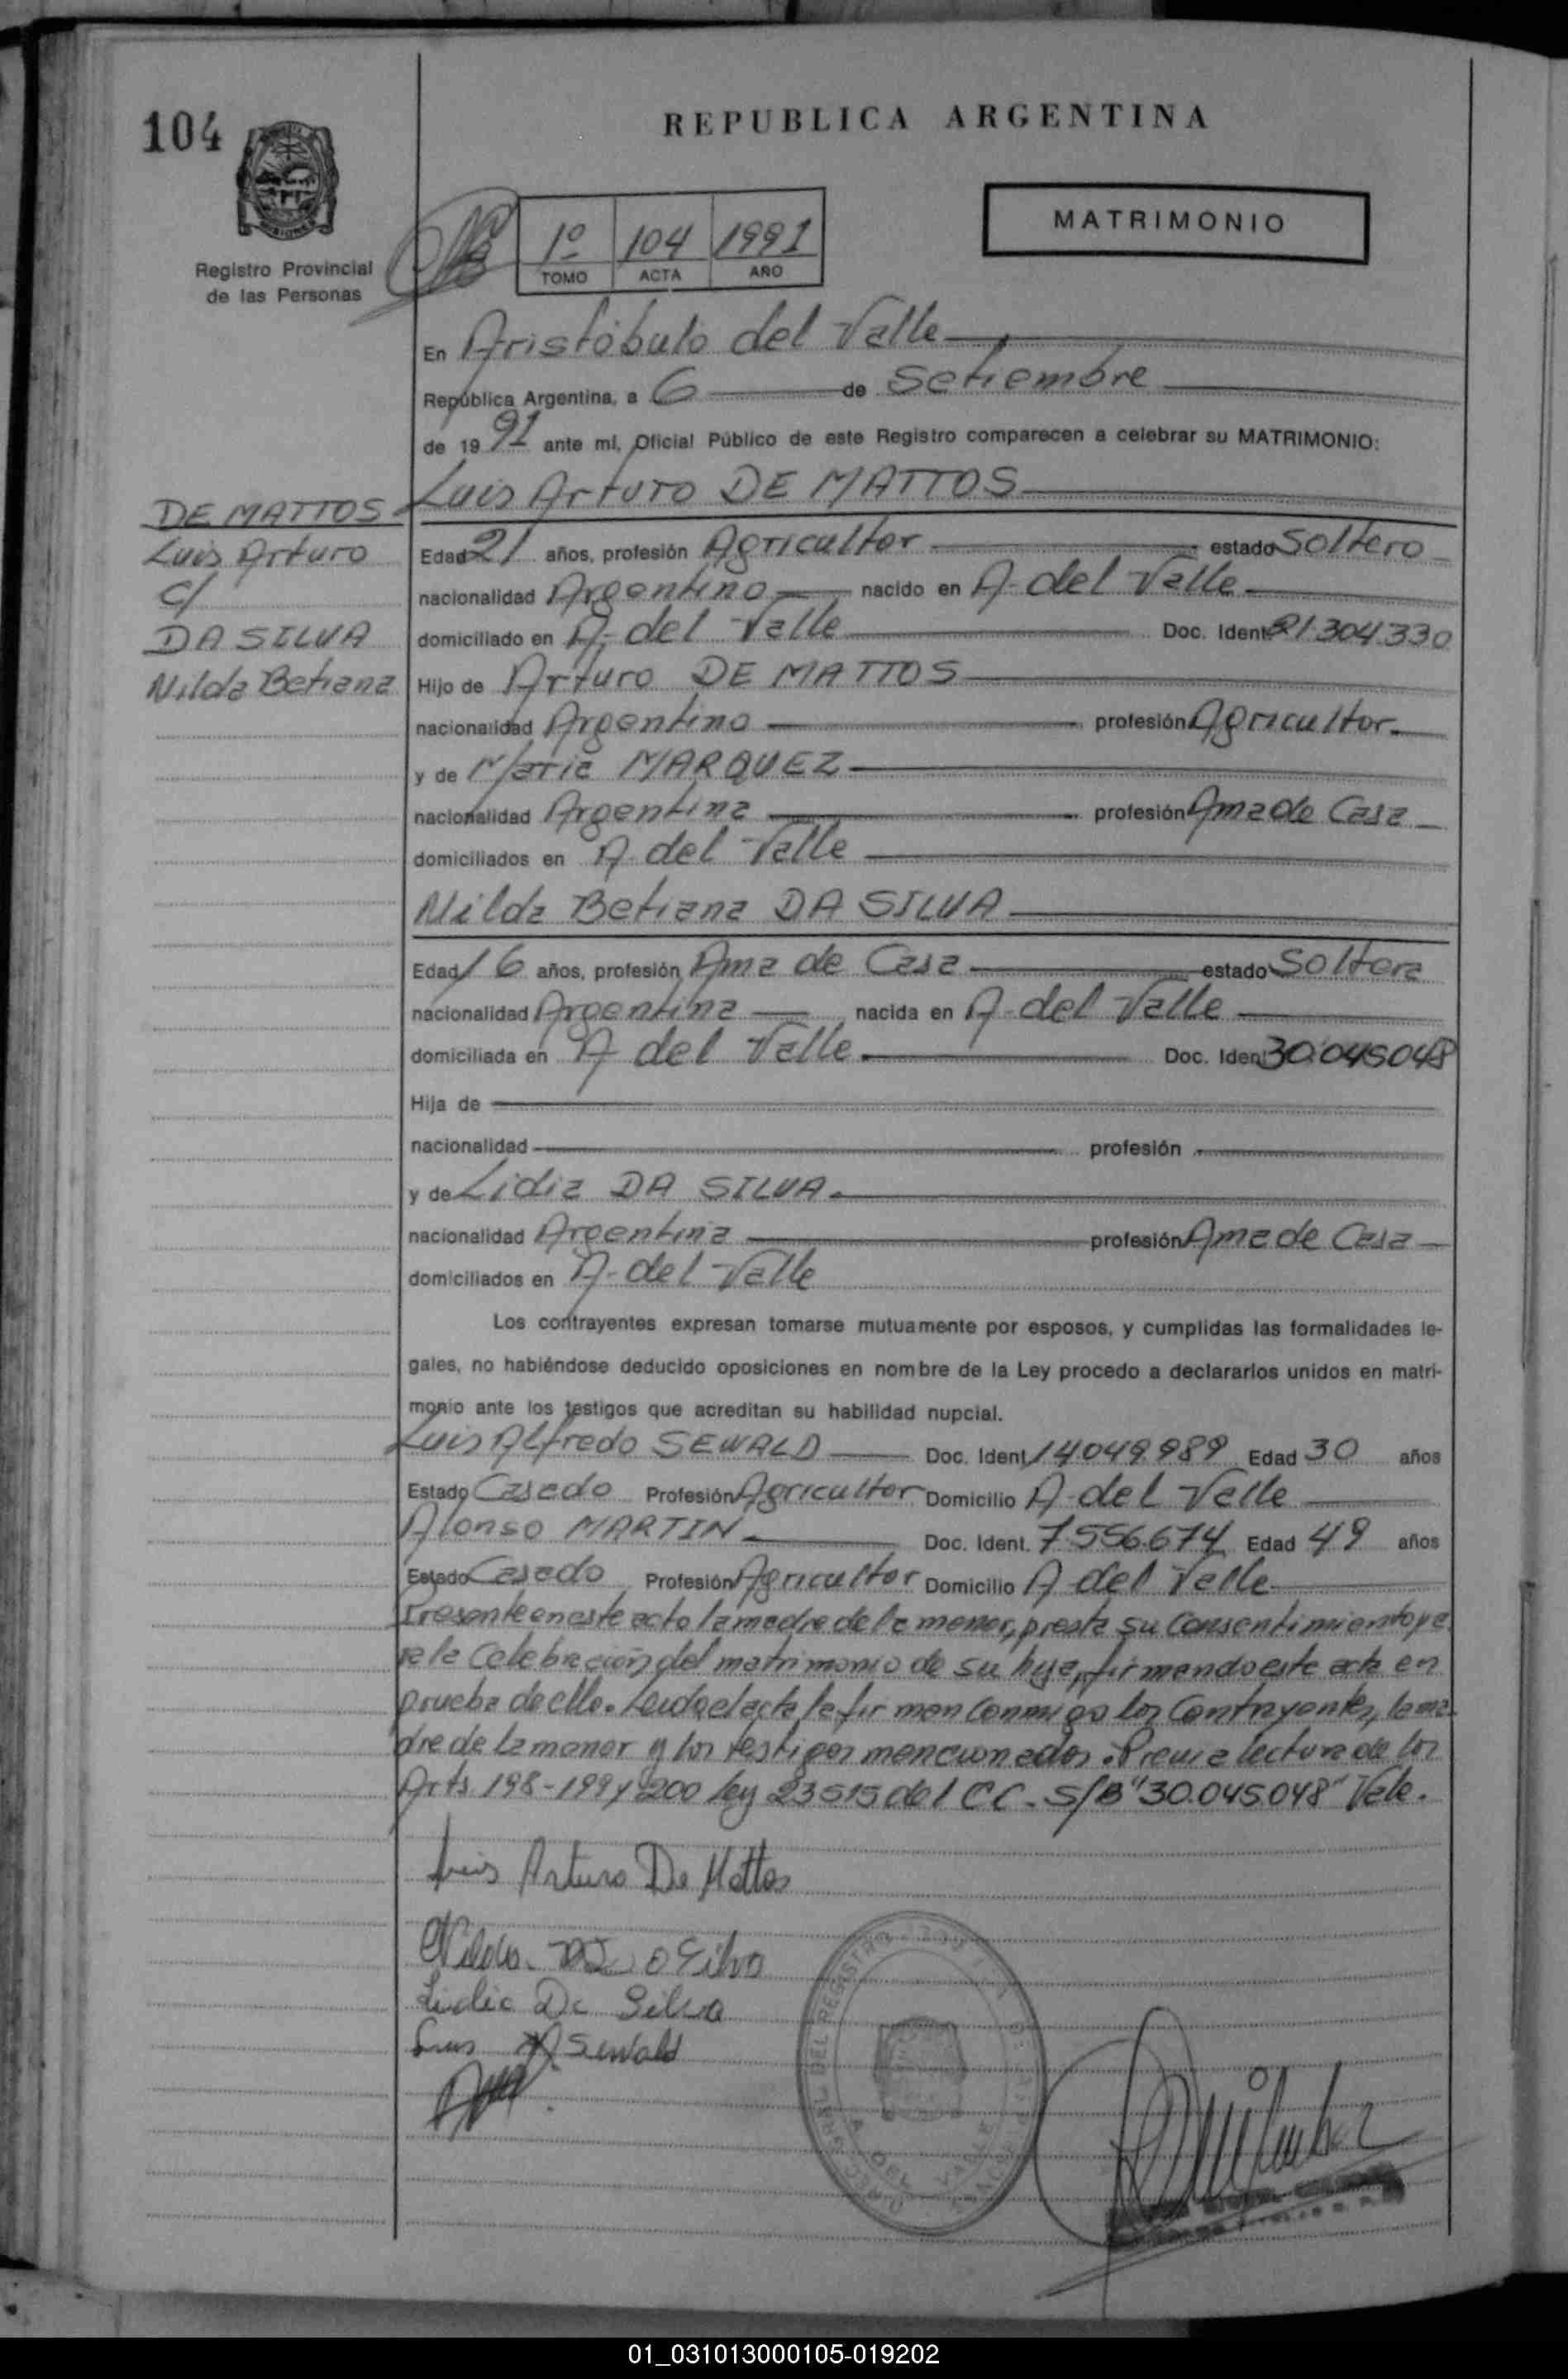 104
REPUBLICA ARGENTINA
MATRIMONIO
Registro Provincial
de las Personas
1º 104 1991
TOMO ACTA AÑO
En Aristóbulo del Valle
República Argentina, a 6 de Setiembre
de 1991 ante mí, Oficial Público de este Registro comparecen a celebrar su MATRIMONIO:
DE MATTOS
Luis Arturo
C/
DA SILVA
Nilda Betiana
Luis Arturo DE MATTOS
Edad 21 años, profesión Agricultor estado Soltero
nacionalidad Argentino nacido en A. del Valle
domiciliado en A. del Valle Doc. Ident. 21.304.330
Hijo de Arturo DE MATTOS
nacionalidad Argentino profesión Agricultor
y de Maria MARQUEZ
nacionalidad Argentina profesión Ama de Casa
domiciliados en A. del Valle
Nilda Betiana DA SILVA
Edad 16 años, profesión Ama de Casa estado Soltera
nacionalidad Argentina nacida en A. del Valle
domiciliada en A del Valle Doc. Ident 30.045048
Hija de
nacionalidad profesión
y de Lidia DA SILVA
nacionalidad Argentina profesión Ama de Casa
domiciliados en A. del Valle
Los contrayentes expresan tomarse mutuamente por esposos, y cumplidas las formalidades le-
gales, no habiéndose deducido oposiciones en nombre de la Ley procedo a declararlos unidos en matri-
monio ante los testigos que acreditan su habilidad nupcial.
Luis Alfredo SEWALD Doc. Ident. 14.049.989 Edad 30 años
Estado Casado Profesión Agricultor Domicilio A. del Valle
Alonso MARTIN Doc. Ident. 7.556.674 Edad 49 años
Estado Casado Profesión Agricultor Domicilio A del Valle
Presente en este acto la madre de la menor, presta su consentimiento pa
ra la Celebración del matrimonio de su hija, firmando este acta en
prueba de ello. Leida el acta la firman conmigo los Contrayentes, la ma
dre de la menor y los testigos mencionados. Previa lectura de los
Arts. 198-199 y 200 ley 23515 del CC. S/B "30.045.048" Vale.
Luis Arturo De Mattos
Nilda Da Silva
Lidia Da Silva
Luis A Sewald
01_031013000105-019202